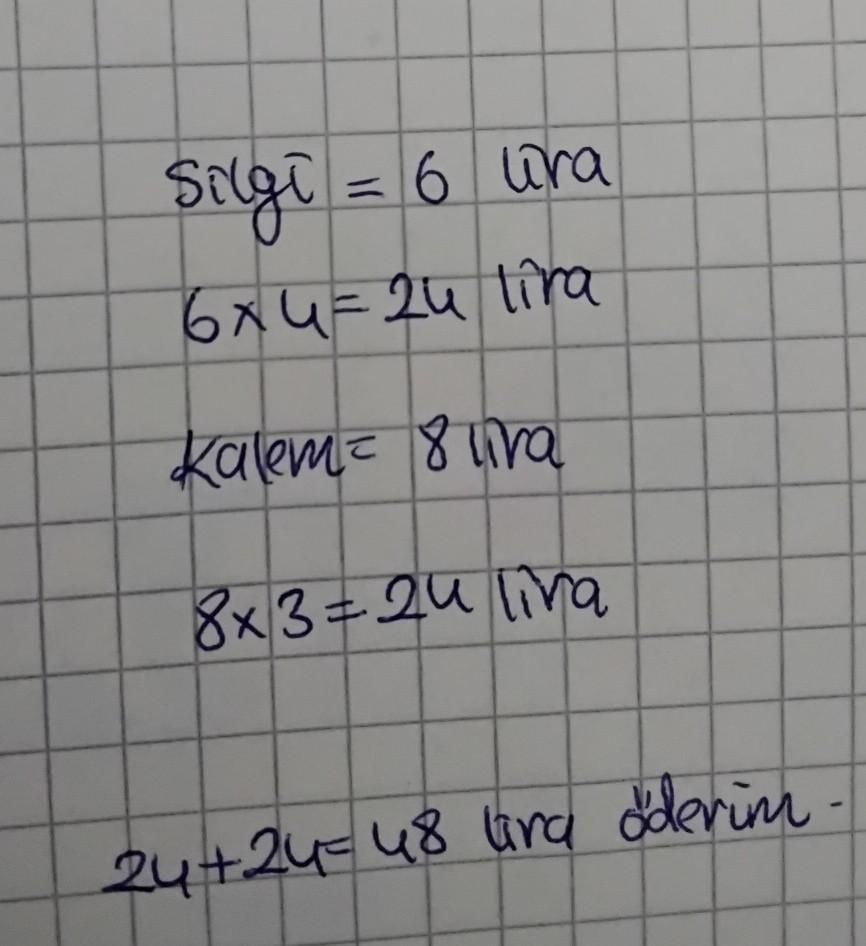 Silgi = 6 lira
6x4=24 lira
Kalem= 8 lira
8x3=24 lira
24+24=48 lira öderim.